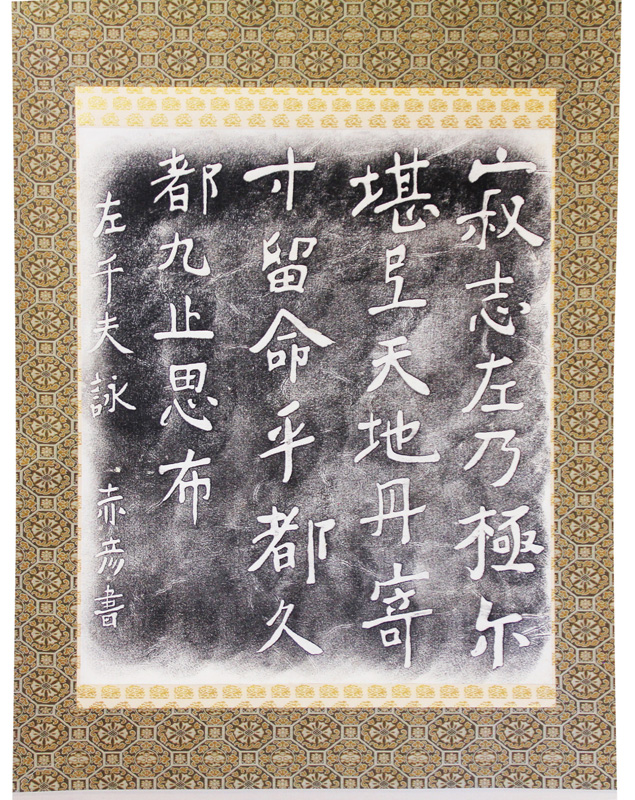 寂志左乃極尓
堪弖天地丹寄
寸留命乎都久
都九止思布
左千夫詠 赤彦書